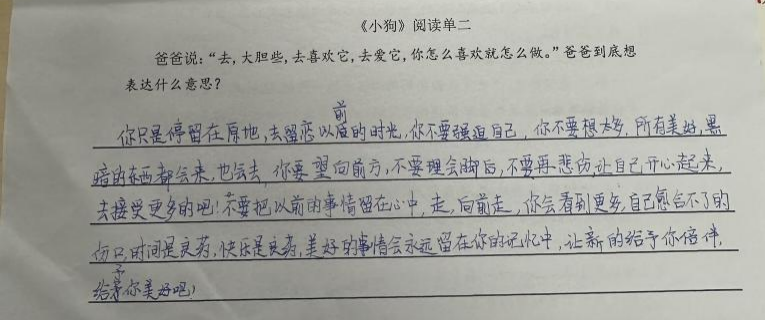 《小狗》阅读单二
爸爸说:“去,大胆些,去喜欢它,去爱它,你怎么喜欢就怎么做。”爸爸到底想
表达什么意思?
你只是停留在原地,去留恋以前的时光,你不要强迫自己,你不要想太多,所有美好,黑
暗的东西都会来,也会去,你要望向前方,不要理会脚后,不要再悲伤让自己开心起来,
去接受更多的吧!不要把以前的事情留在心中,走,向前走,你会看到更多,自己愈合不了的
伤口,时间是良药,快乐是良药,美好的事情会永远留在你的记忆中,让新的给予你陪伴,
给予你美好吧!